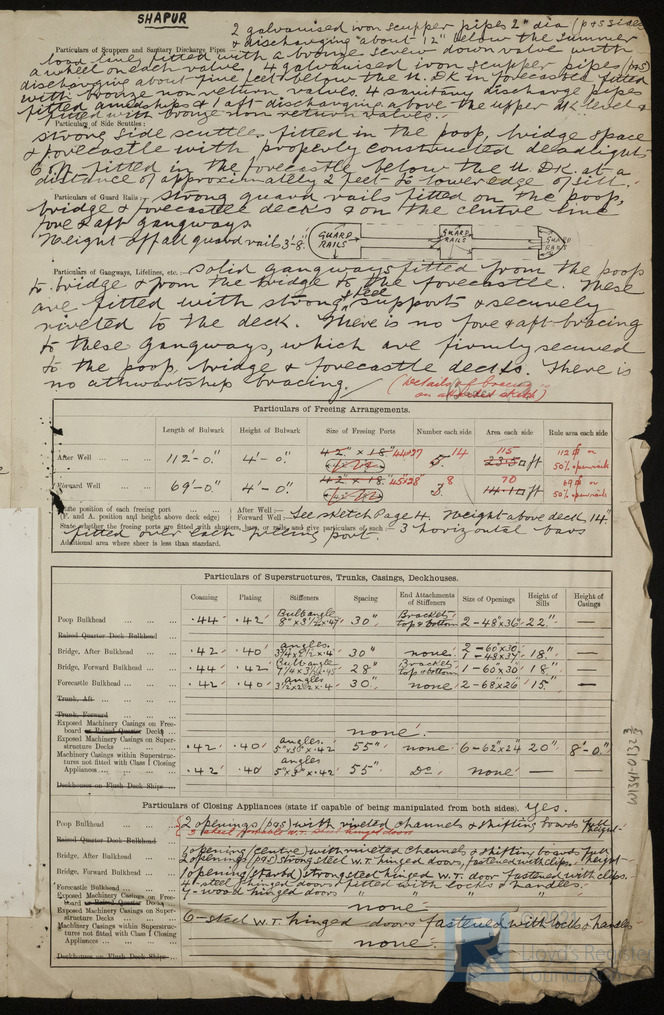 SHAPUR
Particulars of Scuppers and Sanitary Discharge Pipes 2 galvanised iron scupper pipes 2" dia (p&s side)
& discharging about 12" below the summer
load line fitted with a bronze screw down valve with
a wheel on each valve, 4 galvanised iron scupper pipes (p&s)
discharging about five feet below the U. DK in forecastle fitted
with bronze non return valves. 4 sanitary discharge pipes
fitted amidships & 1 aft discharging above the upper DK level &
fitted with bronze non return valves.
Particulars of Side Scuttles:
strong side scuttles fitted in the poop, bridge space
& forecastle with properly constructed deadlights
fitted in the forecastle below the U. DK at a
distance of approximately 2 feet to lower edge of sill.
Particulars of Guard Rails strong guard rails fitted on the poop,
bridge & forecastle decks & on the centre line
fore & aft gangways
Height of all guard rails 3'-8"
GUARD RAILS
GUARD RAILS
GUARD RAILS
Particulars of Gangways, Lifelines, etc. solid gangways fitted from the poop
to bridge & from the bridge to the forecastle. These
are fitted with strong steel supports & securely
riveted to the deck. There is no fore & aft bracing
to these gangways, which are firmly secured
to the poop, bridge & forecastle decks. There is
no athwartship bracing.
(Details of bracing
on attached sketch)
Particulars of Freeing Arrangements.
Length of Bulwark Height of Bulwark Size of Freeing Ports Number each side Area each side Rule area each side
After Well 112'-0" 4'-0" 42" x 18" 44x27 5 14 115 23.50 ft 112 or
50% openrails
Forward Well 69'-0" 4'-0" 42" x 18" 45x28 3 8 70 14.10 ft 69 or
50% openrails
State position of each freeing port (F. and A. position and height above deck edge) After Well:— Forward Well:— See sketch Page 4. Height above deck 14"
State whether the freeing ports are fitted with shutters, bars, or rails, and give particulars of such 3 horizontal bars
fitted over each freeing port.
Additional area where sheer is less than standard.
Particulars of Superstructures, Trunks, Casings, Deckhouses.
Coaming Plating Stiffeners Spacing End Attachments of Stiffeners Size of Openings Height of Sills Height of Casings
Poop Bulkhead .44" .42" Bulb angle 8" x 3½ x .47 30" Brackets top & bottom 2-48"x36" 22" —
Raised Quarter Deck Bulkhead
Bridge, After Bulkhead .42 .40 angles 3¼x2½x.4 30" none 2-60"x30 1-48x37 18" —
Bridge, Forward Bulkhead .44 .42 Bulb angle 7¼x3½x.45 28" Brackets top & bottom 1-60"x30 18" —
Forecastle Bulkhead .42 .40 angles 3½x2½x.4 30" none 2-68"x26" 15" —
Trunk, Aft
Trunk, Forward
Exposed Machinery Casings on Freeboard or Raised Quarter Decks none.
Exposed Machinery Casings on Superstructure Decks .42 .40 angles. 5"x3"x.42 55" none 6-62"x24" 20" 8'-0"
Machinery Casings within Superstructures not fitted with Class I Closing Appliances .42 .40 angles 5"x3"x.42 55" Do. none — —
Deckhouses on Flush Deck Ships
Particulars of Closing Appliances (state if capable of being manipulated from both sides). Yes.
Poop Bulkhead 2 openings (p&s) with riveted channels & shifting boards full height
W.T. steel hinged doors
Raised Quarter Deck Bulkhead
Bridge, After Bulkhead 1 opening (centre) with riveted channels & shifting boards full height
2 openings (p&s) strong steel W.T. hinged doors, fastened with clips.
Bridge, Forward Bulkhead 1 opening (starbd) strong steel hinged W.T. door fastened with clips.
Forecastle Bulkhead 4-steel hinged doors fitted with locks & handles.
wood hinged doors " "
Exposed Machinery Casings on Freeboard or Raised Quarter Decks none
Exposed Machinery Casings on Superstructure Decks 6-steel W.T. hinged doors fastened with locks & handles
Machinery Casings within Superstructures not fitted with Class I Closing Appliances none
Deckhouses on Flush Deck Ships
Lloyd's Register
Foundation